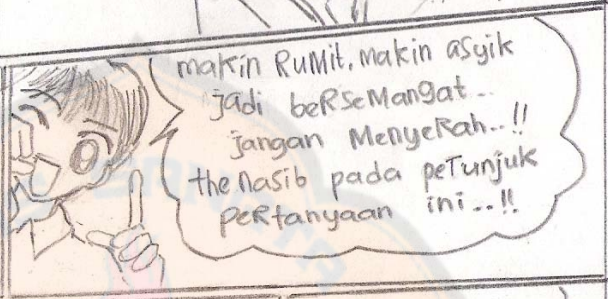 makin RUMit, makin asyik
jadi beRSeMangat...
jangan MenyeRah..!!
the nasib pada peTunjuk
peRtanyaan ini..!!